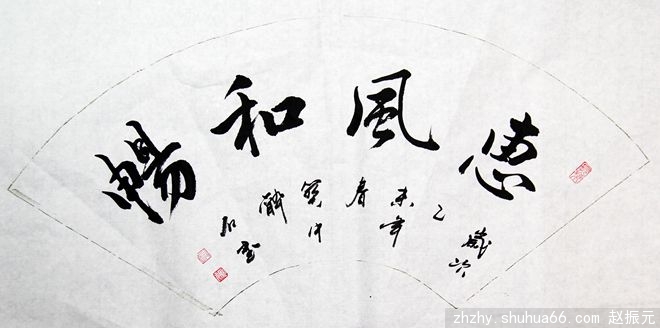 惠風和暢
歲次
乙
未年
春
石
zhzhy.shuhua66.com 赵振元